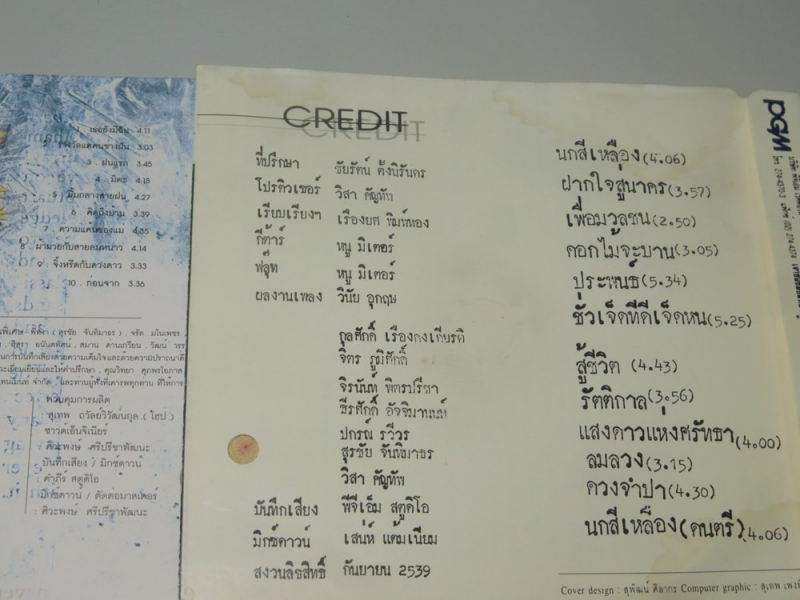 1. เธอยังมีฉัน 4.11
2. รางวัลแด่คนช่างฝัน 3.03
3. ฝนแรก 3.45
4. มิตะ 4.18
5. ยิ้มกลางสายฝน 4.27
6. คิดถึงบ้าน 3.39
7. ความแค้นของแม่ 4.35
8. ผ้าผวยกับสายลมหนาว 4.14
9. จิ้งหรีดกับดวงดาว 3.33
10. ก่อนจาก 3.36
ควบคุมการผลิต
สุเทพ ถวัลย์วิวัฒน์กุล (โฮป)
ซาวด์เอ็นจิเนียร์
ศิวะพงษ์ ศรีปรีชาพัฒนะ
บันทึกเสียง / มิกซ์ดาวน์
คำภีร์ สตูดิโอ
มิกซ์ดาวน์ / ตัดต่อมาสเตอร์
ศิวะพงษ์ ศรีปรีชาพัฒนะ
CREDIT
ที่ปรึกษา ชัยรัตน์ ตั้งนิรันดร
โปรดิวเซอร์ วิสา คัญทัพ
เรียบเรียงฯ เรืองยศ พิมพ์ทอง
กีต้าร์ หนู มิเตอร์
ฟลุ๊ท หนู มิเตอร์
ผลงานเพลง วินัย อุกฤษ
กุลศักดิ์ เรืองคงเกียรติ
จิตร ภูมิศักดิ์
จิรนันท์ พิตรปรีชา
ธีรศักดิ์ อัจจิมานนท์
ปกรณ์ รวีวร
สุรชัย จันทิมาธร
วิสา คัญทัพ
บันทึกเสียง พีจีเอ็ม สตูดิโอ
มิกซ์ดาวน์ เสน่ห์ แต้มเนียม
สงวนลิขสิทธิ์ กันยายน 2539
นกสีเหลือง (4.06)
ฝากใจสู่นาคร (3.57)
เพื่อมวลชน (2.50)
ดอกไม้จะบาน (3.05)
ประพนธ์ (5.34)
ชั่วเจ็ดทีดีเจ็ดหน (5.25)
สู้ชีวิต (4.43)
รัตติกาล (3.56)
แสงดาวแห่งศรัทธา (4.00)
ลมลวง (3.15)
ดวงจำปา (4.30)
นกสีเหลือง (ดนตรี) (4.06)
Cover design : สุพัฒน์ ศิลากร Computer graphic : สุเทพ
PGM